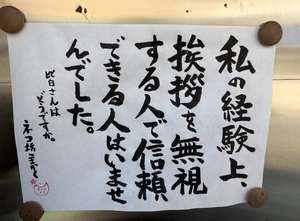 私の経験上、
挨拶を無視
する人で信頼
できる人はいませ
んでした。
皆さんは
どうですか。